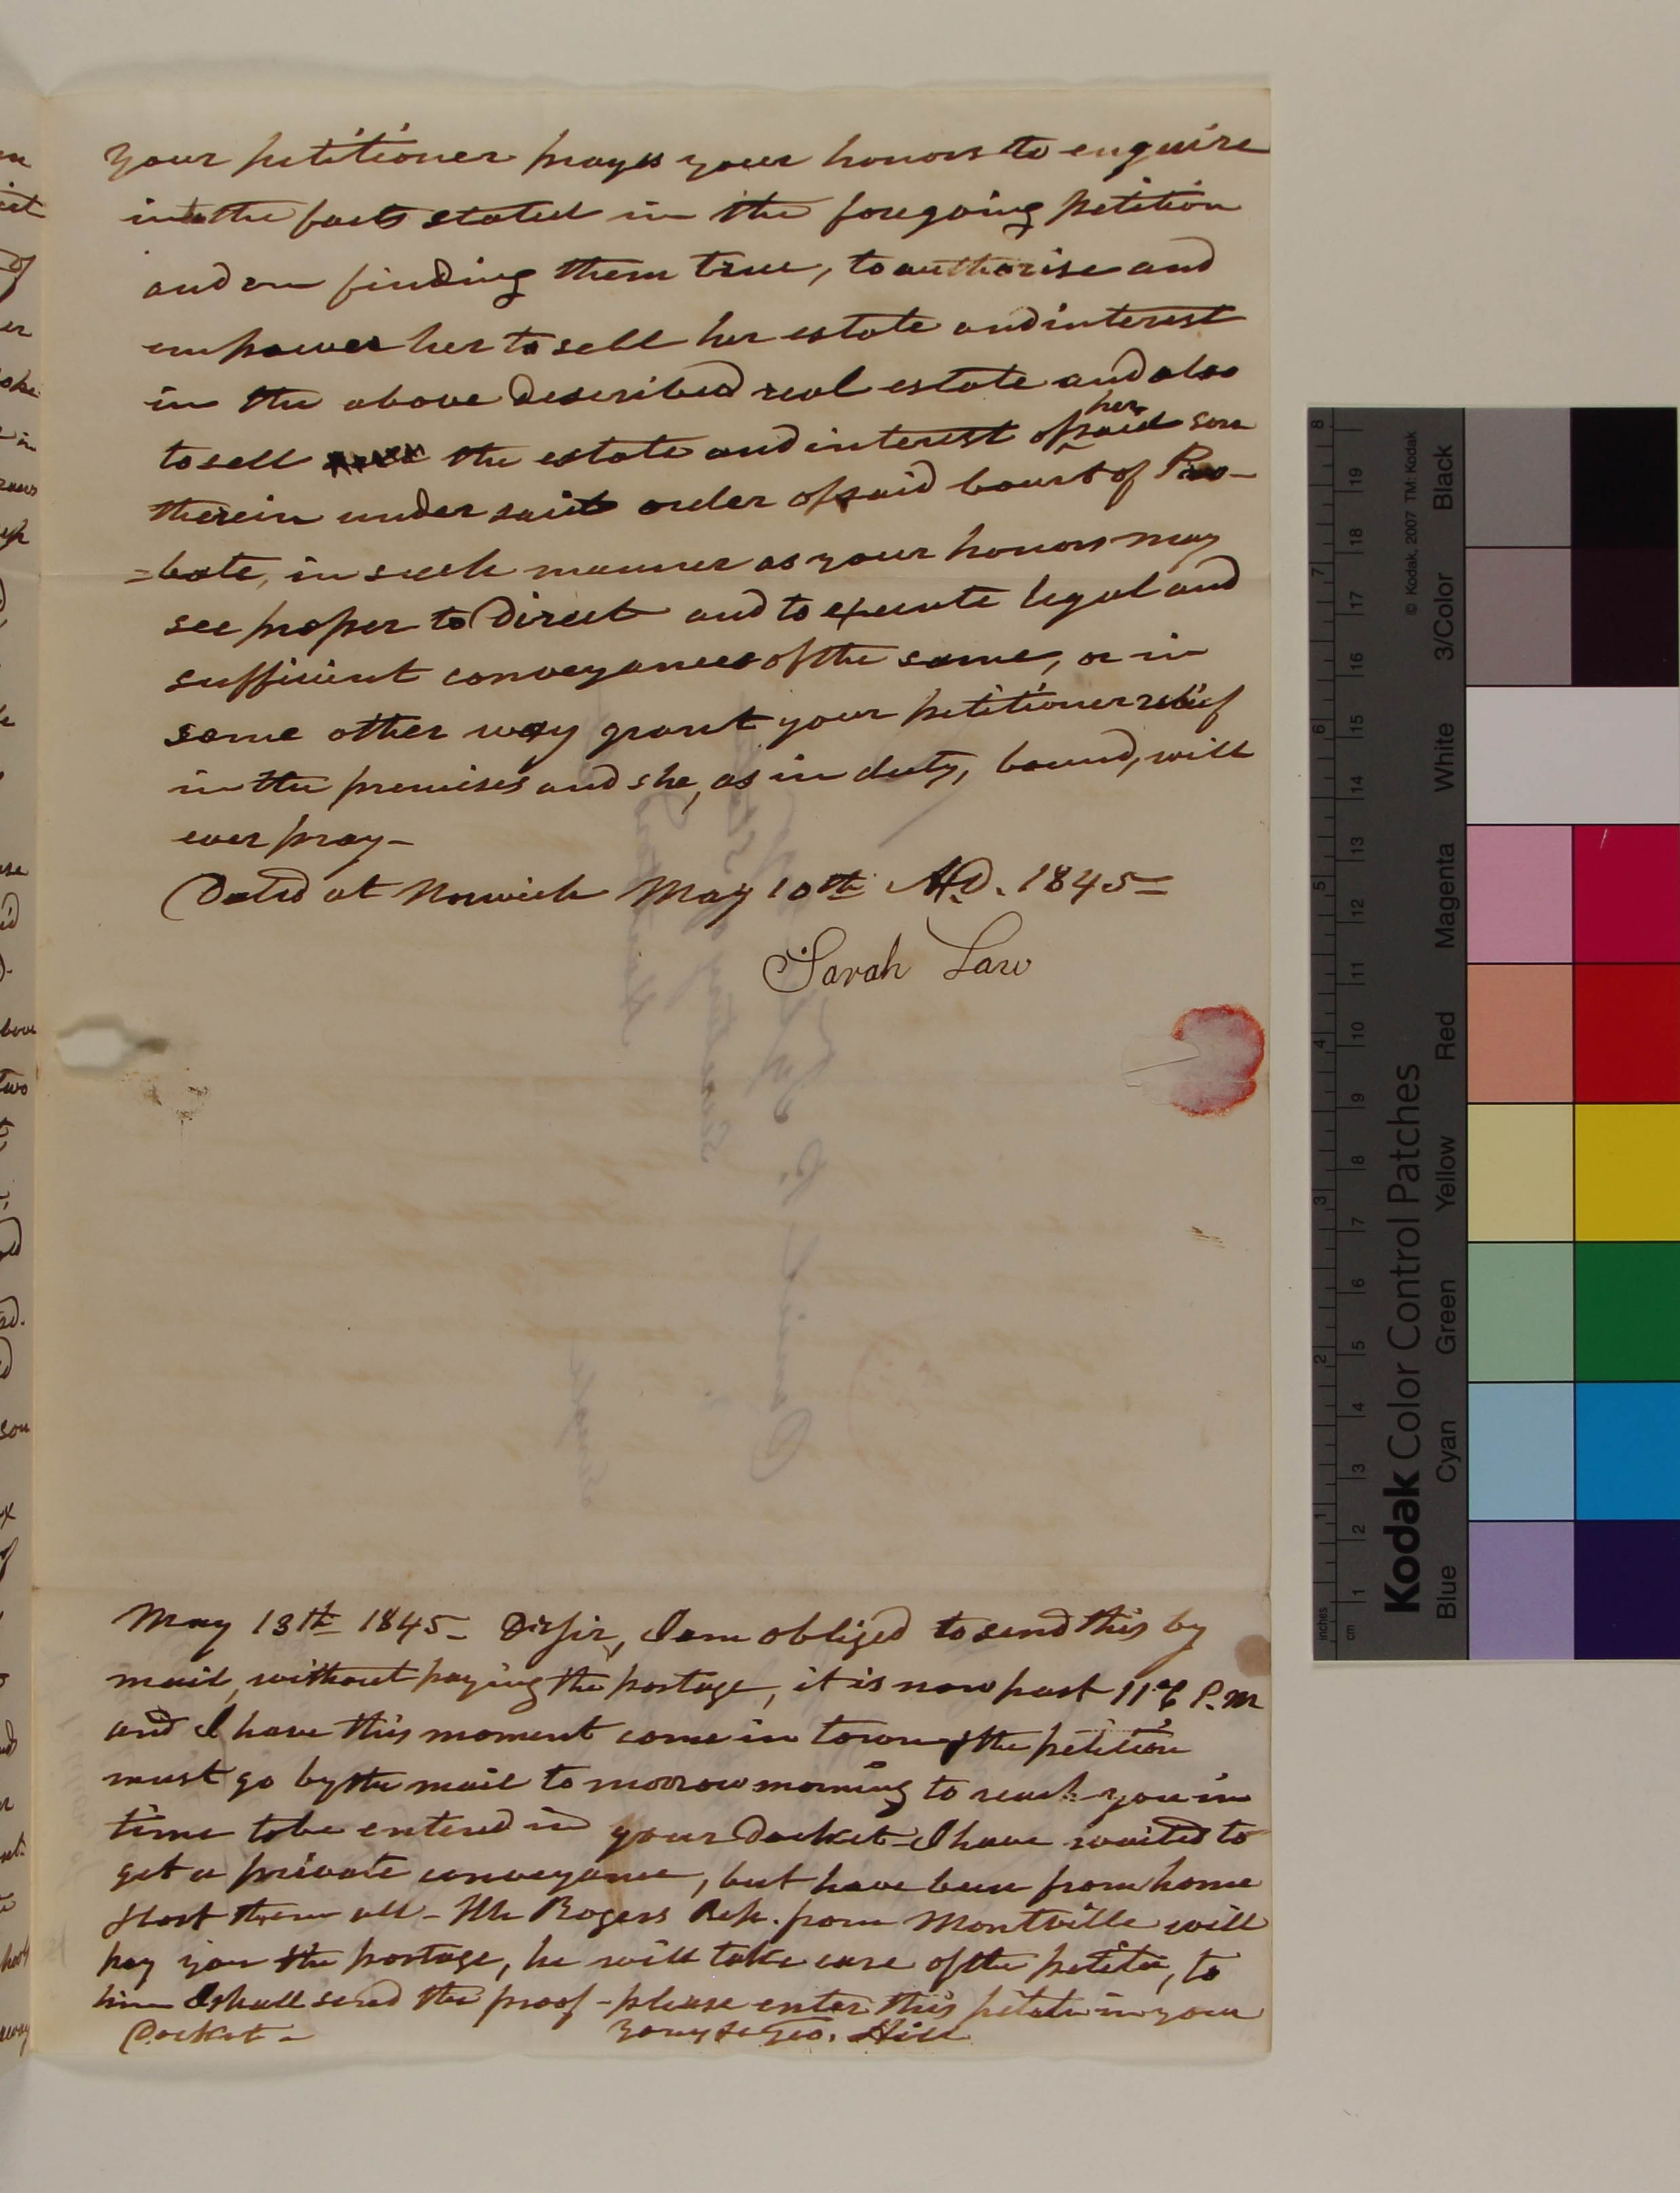 your petitioner prays your honors to enquire
into the facts stated in the foregoing petition
and on finding them true, to authorise and
empower her to sell her estate and interest
in the above described real estate and also
to sell the estate and interest of her said son
therein under said order of said Court of Pro-
=bate, in such manner as your honors may
see proper to direct and to execute legal and
sufficient conveyances of the same, or in
some other way grant your petitioner relief
in the premises and she, as in duty, bound, will
ever pray-
Dated at Norwich May 10th A.D. 1845=
Sarah Law
May 13th 1845- Dr sir, I am obliged to send this by
mail, without paying the postage, it is now past 11 P.M
and I have this moment come in town & the petition
must go by the mail to morrow morning to reach you in
time to be entered in your Docket- I have waited to
get a private conveyance, but have been from home
& lost them all- Mr Rogers Rep. from Montville will
pay you the postage, he will take care of the petitn, to
him I shall send the proof- please enter this petitn in your
Docket-
Yours &c Geo. Hill
Kodak Color Control Patches
© Kodak, 2007 TM: Kodak
Blue Cyan Green Yellow Red Magenta White 3/Color Black
inches 1 2 3 4 5 6 7 8
cm 1 2 3 4 5 6 7 8 9 10 11 12 13 14 15 16 17 18 19